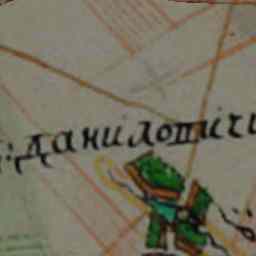 :данилотичі